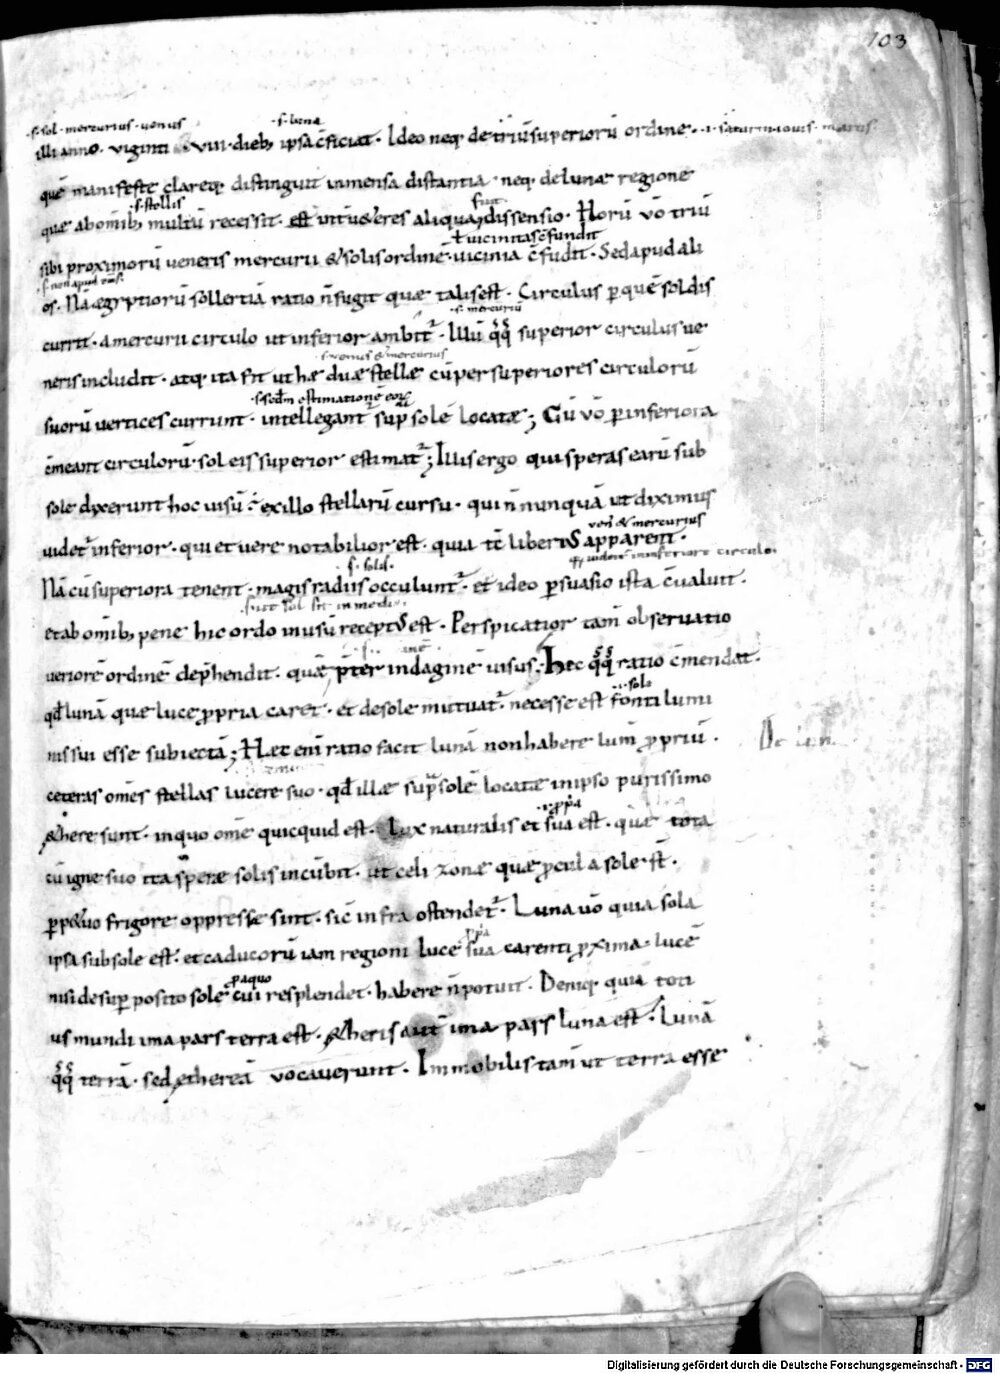 103
.s. sol . mercurius . uenus .s. luna
illi anno . viginti viii . dieb; ipsa c̄ficiat . Ideo neq; de triū superiorū ordine . .i. saturni iouis martis
quē manifeste clareq; distinguit inmensa distantia . neq; de lunæ regione
.s. stellis fuit
quæ ab omib; multū recessit . est int ueteres aliqua dissensio . Horū v̄o triū
ł uicinitas c̄fundit
sibi proximorū ueneris mercurii & solis ordinē . uicinia c̄fudit . Sed apud ali
.s. non apud om̄s.
os . Nā ægyptiorū sollertiā ratio n̄ fugit quæ talis est . Circulus p̱ quē sol dis
.s. mercuriū
currit . a mercurii circulo ut inferior ambit᷒ . Illū q̊q̊ superior circulus ue
.s. uenus & mercurius
neris includit . atq; ita fit ut hæ duæ stellæ cū per superiores circulorū
.s. scd̄m estimationē eoꝝ
suorū uertices currunt . intellegant᷒ sup̱ solē locatæ ; Cū v̄o p̱ inferiora
c̄meant circulorū . sol eis superior estimat᷒ ; Illis ergo qui speras earū sub
sole dixerunt hoc uisū ē ex illo stellarū cursu . qui n̄nunquā ut diximus
ven᷒ & mercurius
uidet᷒ inferior . qui et uere notabilior est . quia tc̄ liberi᷒ apparent .
in inferiore circulo .
Nā cū superiora tenent . magis radiis occulunt᷒ . et ideo p̱suasio ista c̄ualuit .
.s. solis .
sol sit in medio .
et ab omib; pene hic ordo in usū recept᷒ est . Perspicatior tam̄ obseruatio
ueriorē ordinē dep̄hendit . quæ p̄ter indaginē uisus . Hec q̊q̊ ratio c̄mendat .
.i. sole
qđ lunā quæ luce ꝓpria caret . et de sole mutuat᷒ . necesse est fonti lumi
nis sui esse subiectā ; Hæc eni ratio facit lunā non habere lum̄ ꝓpriū .
De lun
ceteras om̄es stellas lucere suo . qđ illæ sup̱ solē locatæ in ipso purissimo
.i. ꝓp̱a
æthere sunt . in quo om̄e quicquid est . Lux naturalis et sua est . quæ tota
cū igne suo ita speræ solis incūbit . ut celi zonæ quæ ꝓcul a sole sT̄ .
p̱petuo frigore oppresse sint . sic infra ostendet᷒ . Luna v̄o quia sola
ꝓp̱a
ipsa sub sole est . et caducorū iam regioni luce sua carenti ꝓxima . lucē
ꝓ a quo
nisi de sup̱ posito sole cui resplendet . habere n̄ potuit . Deniq; quia toti
us mundi ima pars terra est . ætheris aut̄ ima pars luna est . Lunā
q̊q̊ terrā . sed ætherea̅ vocauerunt . Immobilis tam̄ ut terra esse
Digitalisierung gefördert durch die Deutsche Forschungsgemeinschaft - DFG